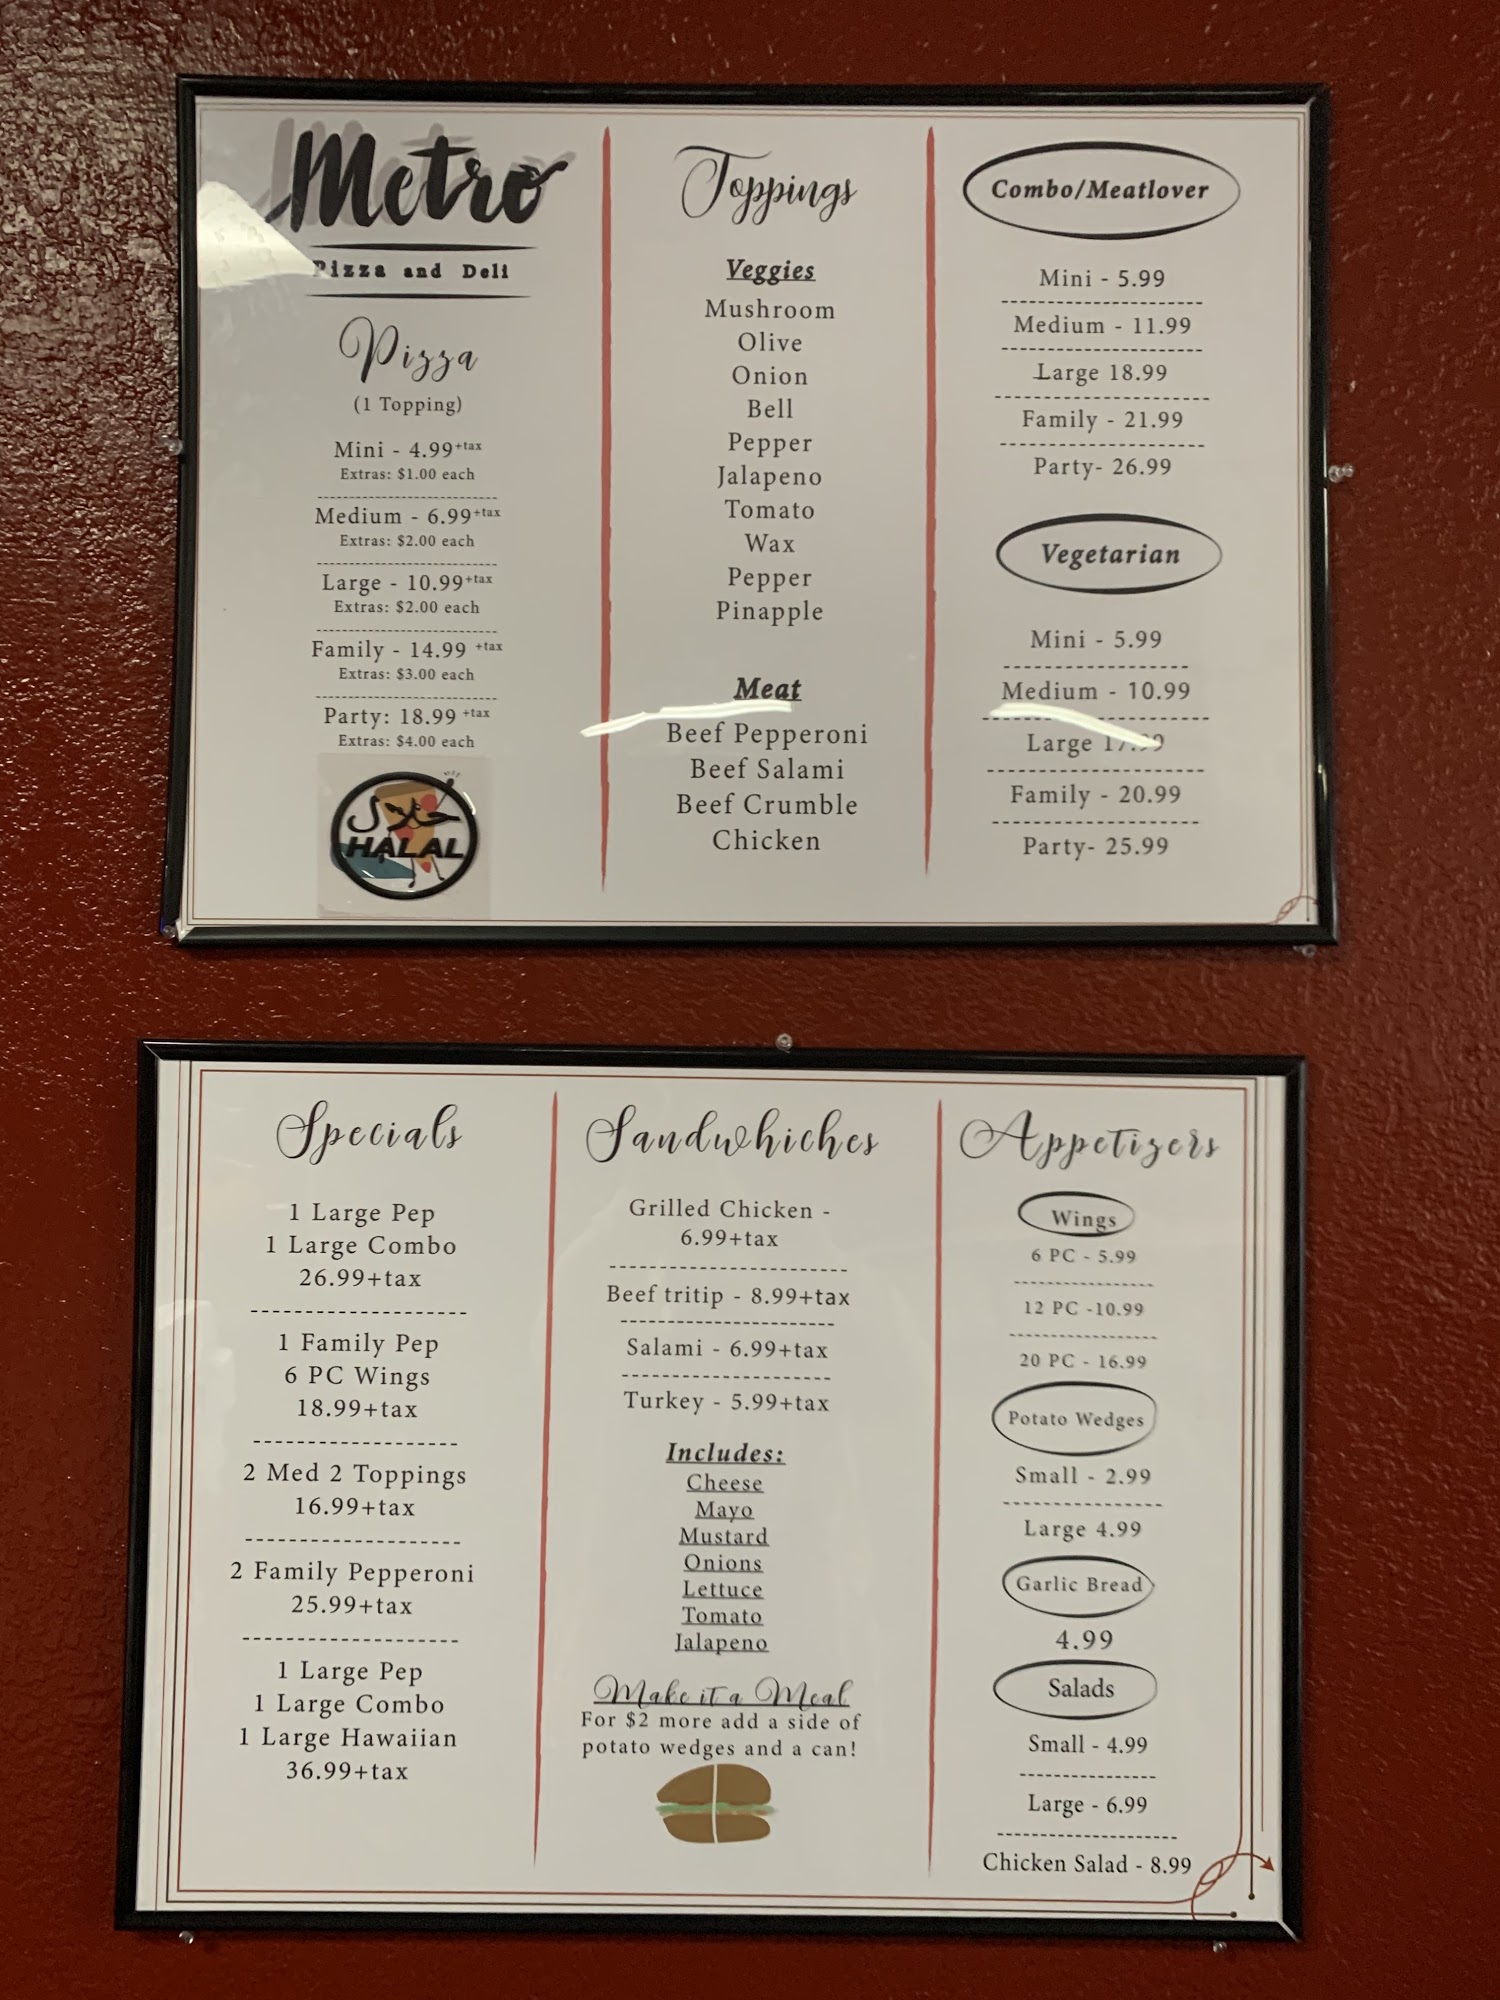 Metro
Pizza and Deli
Pizza
(1 Topping)
Mini - 4.99+tax
Extras: $1.00 each
Medium - 6.99+tax
Extras: $2.00 each
Large - 10.99+tax
Extras: $2.00 each
Family - 14.99 +tax
Extras: $3.00 each
Party: 18.99 +tax
Extras: $4.00 each
حلال
HALAL
Toppings
Veggies
Mushroom
Olive
Onion
Bell
Pepper
Jalapeno
Tomato
Wax
Pepper
Pinapple
Meat
Beef Pepperoni
Beef Salami
Beef Crumble
Chicken
Combo/Meatlover
Mini - 5.99
Medium - 11.99
Large 18.99
Family - 21.99
Party- 26.99
Vegetarian
Mini - 5.99
Medium - 10.99
Large
Family - 20.99
Party- 25.99
Specials
1 Large Pep
1 Large Combo
26.99+tax
1 Family Pep
6 PC Wings
18.99+tax
2 Med 2 Toppings
16.99+tax
2 Family Pepperoni
25.99+tax
1 Large Pep
1 Large Combo
1 Large Hawaiian
36.99+tax
Sandwhiches
Grilled Chicken -
6.99+tax
Beef tritip - 8.99+tax
Salami - 6.99+tax
Turkey - 5.99+tax
Includes:
Cheese
Mayo
Mustard
Onions
Lettuce
Tomato
Jalapeno
Make it a Meal
For $2 more add a side of
potato wedges and a can!
Appetizers
Wings
6 PC - 5.99
12 PC -10.99
20 PC - 16.99
Potato Wedges
Small - 2.99
Large 4.99
Garlic Bread
4.99
Salads
Small - 4.99
Large - 6.99
Chicken Salad - 8.99